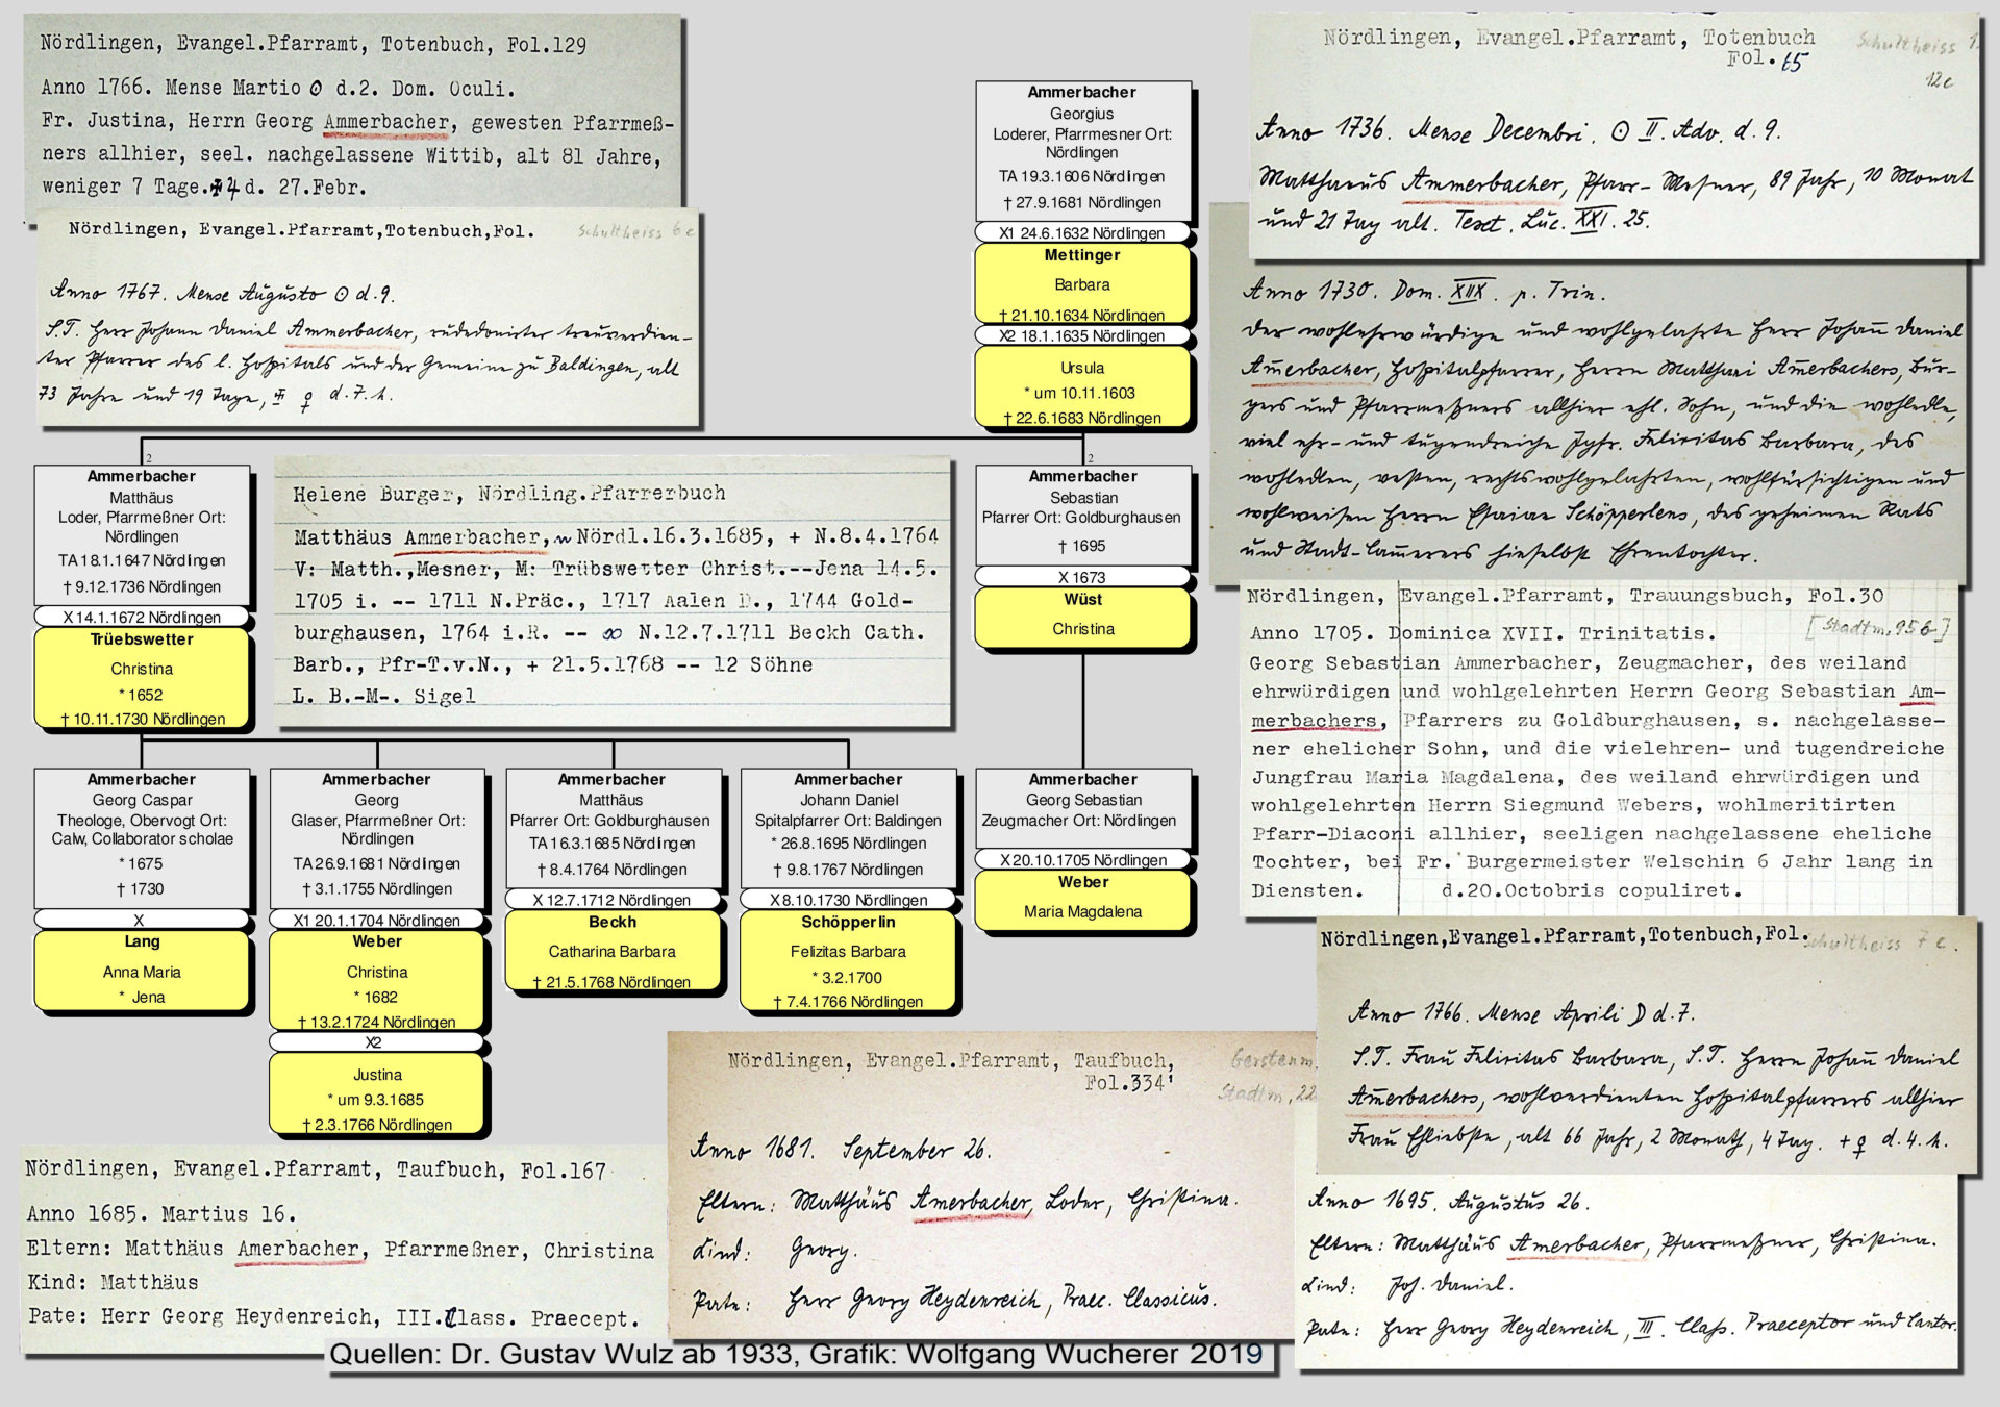 Nördlingen, Evangel.Pfarramt, Totenbuch, Fol.129
Anno 1766. Mense Martio ʘ d.2. Dom. Oculi.
Fr. Justina, Herrn Georg Ammerbacher, gewesten Pfarrmeß-
ners allhier, seel. nachgelassene Wittib, alt 81 Jahre,
weniger 7 Tage. d. 27.Febr.
Nördlingen, Evangel.Pfarramt,Totenbuch,Fol.
Schultheiss 6 e
Anno 1767. Mense Augusto ʘ d. 9.
S.T. Herr Johann Daniel Ammerbacher, rudedonirter treuverdien-
ter Pfarrer des l. Hospitals und der Gemeine zu Baldingen, alt
73 Jahre und 19 Tage, ♀ d. 7. h.
Ammerbacher
Georgius
Loderer, Pfarrmesner Ort:
Nördlingen
TA 19.3.1606 Nördlingen
† 27.9.1681 Nördlingen
X1 24.6.1632 Nördlingen
Mettinger
Barbara
† 21.10.1634 Nördlingen
X2 18.1.1635 Nördlingen
Ursula
* um 10.11.1603
† 22.6.1683 Nördlingen
Nördlingen, Evangel.Pfarramt, Totenbuch
Fol. 65
Schultheiss
12c
Anno 1736. Mense Decembri. ʘ II. Adv. d. 9.
Matthaeus Ammerbacher, Pfarr-Meßner, 89 Jahr, 10 Monat
und 21 Tag alt. Text. Luc. XXI. 25.
Anno 1730. Dom. XIIX. p. Trin.
Der wohlehrwürdige und wohlgelahrte Herr Johan̄ Daniel
Am̄erbacher, Hospitalpfarrer, Herrn Matthaei Am̄erbachers, Bür-
gers und Pfarrmeßners allhier ehl. Sohn, und die wohledle,
viel ehr- und tugendreiche Jgfr. Felicitas Barbara, des
wohledlen, vesten, rechtswohlgelahrten, wohlfürsichtigen und
wohlweisen Herrn Esaiae Schöpperlens, des geheimen Rats
und Stadt-Cam̄erers hieselbst Ehrentochter.
2
Ammerbacher
Matthäus
Loder, Pfarrmeßner Ort:
Nördlingen
TA 18.1.1647 Nördlingen
† 9.12.1736 Nördlingen
X 14.1.1672 Nördlingen
Trüebswetter
Christina
* 1652
† 10.11.1730 Nördlingen
Helene Burger, Nördling.Pfarrerbuch
Matthäus Ammerbacher, ~ Nördl.16.3.1685, + N.8.4.1764
V: Matth.,Mesner, M: Trübswetter Christ.--Jena 14.5.
1705 i. -- 1711 N.Präc., 1717 Aalen D., 1744 Gold-
burghausen, 1764 i.R. -- ∞ N.12.7.1711 Beckh Cath.
Barb., Pfr-T.v.N., + 21.5.1768 -- 12 Söhne
L. B.-M-. Sigel
2
Ammerbacher
Sebastian
Pfarrer Ort: Goldburghausen
† 1695
X 1673
Wüst
Christina
Nördlingen, Evangel.Pfarramt, Trauungsbuch, Fol.30
[Stadtm. 956]
Anno 1705. Dominica XVII. Trinitatis.
Georg Sebastian Ammerbacher, Zeugmacher, des weiland
ehrwürdigen und wohlgelehrten Herrn Georg Sebastian Am-
merbachers, Pfarrers zu Goldburghausen, s. nachgelasse-
ner ehelicher Sohn, und die vielehren- und tugendreiche
Jungfrau Maria Magdalena, des weiland ehrwürdigen und
wohlgelehrten Herrn Siegmund Webers, wohlmeritirten
Pfarr-Diaconi allhier, seeligen nachgelassene eheliche
Tochter, bei Fr. Burgermeister Welschin 6 Jahr lang in
Diensten. d.20.Octobris copuliret.
Ammerbacher
Georg Caspar
Theologe, Obervogt Ort:
Calw, Collaborator scholae
* 1675
† 1730
X
Lang
Anna Maria
* Jena
Ammerbacher
Georg
Glaser, Pfarrmeßner Ort:
Nördlingen
TA 26.9.1681 Nördlingen
† 3.1.1755 Nördlingen
X1 20.1.1704 Nördlingen
Weber
Christina
* 1682
† 13.2.1724 Nördlingen
X2
Justina
* um 9.3.1685
† 2.3.1766 Nördlingen
Ammerbacher
Matthäus
Pfarrer Ort: Goldburghausen
TA 16.3.1685 Nördlingen
† 8.4.1764 Nördlingen
X 12.7.1712 Nördlingen
Beckh
Catharina Barbara
† 21.5.1768 Nördlingen
Ammerbacher
Johann Daniel
Spitalpfarrer Ort: Baldingen
* 26.8.1695 Nördlingen
† 9.8.1767 Nördlingen
X 8.10.1730 Nördlingen
Schöpperlin
Felizitas Barbara
* 3.2.1700
† 7.4.1766 Nördlingen
Ammerbacher
Georg Sebastian
Zeugmacher Ort: Nördlingen
X 20.10.1705 Nördlingen
Weber
Maria Magdalena
Nördlingen,Evangel.Pfarramt,Totenbuch,Fol.
Schultheiss 7 c.
Anno 1766. Mense Aprili ☽ d. 7.
S.T. Frau Felicitas Barbara, S.T. Herrn Johan̄ Daniel
Am̄erbachers, wohlverdienten Hospitalpfarrers allhier
Frau Eheliebste, alt 66 Jahr, 2 Monath, 4 Tag. + ♀ d. 4. h.
Nördlingen, Evangel.Pfarramt, Taufbuch,
Fol.334'
Gerstenm.
Stadtm, 22
Anno 1681. September 26.
Eltern: Matthäus Amerbacher, Loder, Christina.
Kind: Georg.
Pate: Herr Georg Heydenreich, Praec. Classicus.
Nördlingen, Evangel.Pfarramt, Taufbuch, Fol.167
Anno 1685. Martius 16.
Eltern: Matthäus Amerbacher, Pfarrmeßner, Christina
Kind: Matthäus
Pate: Herr Georg Heydenreich, III.Class. Praecept.
Anno 1695. Augustus 26.
Eltern: Matthäus Amerbacher, Pfarrmeßner, Christina.
Kind: Joh. Daniel.
Pate: Herr Georg Heydenreich, III. Class. Praeceptor und Cantor.
Quellen: Dr. Gustav Wulz ab 1933, Grafik: Wolfgang Wucherer 2019